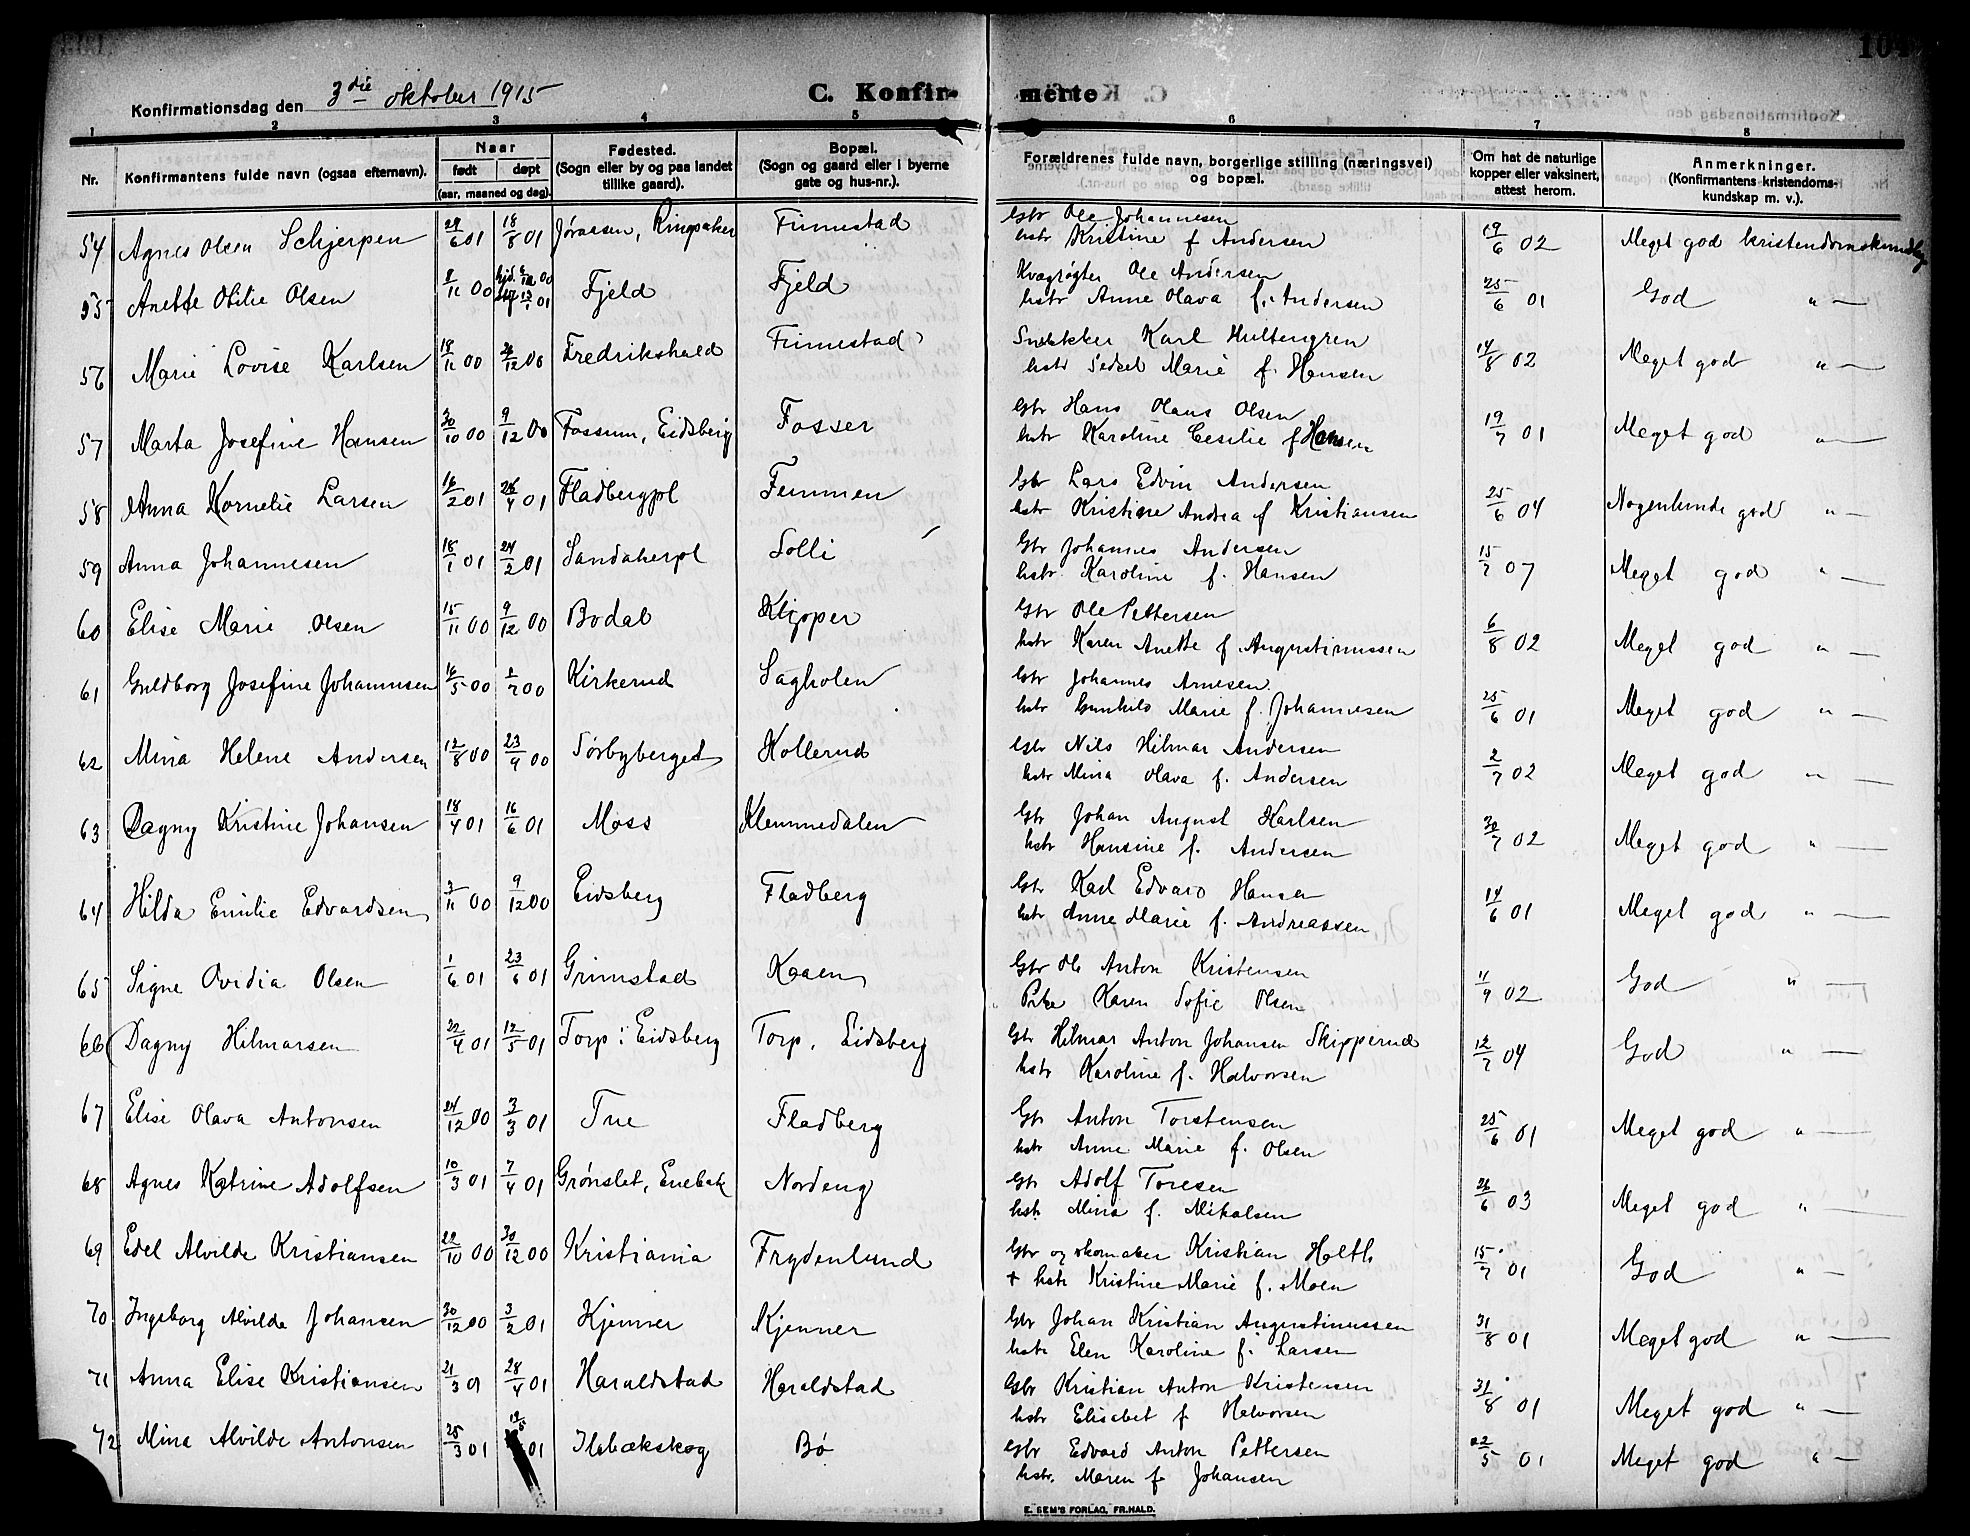 Konfirmationsdag den 3die oktober 1915
C. Konfirmerte
1 2 3 4 5 6 7 8
Nr. Konfirmantens fulde navn (ogsaa efternavn). Naar født døpt (aar, maaned og dag). Fødested. (Sogn eller by og paa landet tillike gaard). Bopæl. (Sogn og gaard eller i byerne gate og hus-nr.). Forældrenes fulde navn, borgerlige stilling (næringsvei) og bopæl. Om hat de naturlige kopper eller vaksinert, attest herom. Anmerkninger. (Konfirmantens kristendomskundskap m. v.).
54 Agnes Olsen Schjerpen 6 01 18/8 01 Ringsaker Finnestad Gbr Ole Johannesen
hstr Kristine f Andersen 19/6 02 Meget god
55 Anette Otilie Olsen 8/11 00 Fjeld Fjeld Kvægrøgter Ole Andersen
hstr Anne Olava f. Andersen 25/6 01 God " —
56 Marie Lovise Karlsen 18/11 00 12 00 Fredrikshald Finnestad Snekker Karl Hultengren
hstr Sedsel Marie f. Hansen 14/8 02 Meget god " —
57 Marta Josefine Hansen 30/10 00 9/12 00 Fossum, Eidsberg Fosser Gbr Hans Olaus Olsen
hstr Karoline Cesilie f Hansen 19/7 01 Meget god " —
58 Anna Kornelie Larsen 16/2 01 26/4 01 Fladbergpl Femmen Gbr Lars Edvin Andersen
hstr Kristine Andrea f Kristiansen 25/6 04 Nogenlunde god " —
59 Anna Johannesen 18/1 01 24/2 01 Sandakerpl Solli Gbr Johannes Andersen
hstr. Karoline f. Hansen 15/7 07 Meget god " —
60 Elise Marie Olsen 15/11 00 9/12 00 Bodal Klypper Gbr Ole Pettersen
hstr Karen Anette f Augustinussen 6/8 02 Meget god " —
61 Guldborg Josefine Johannesen 16/5 00 1/7 00 Kirkerud Sagholen Gbr Johannes Arnesen
hstr Gunhild Marie f. Johannesen 25/6 01 Meget god " —
62 Mina Helene Andersen 12/8 00 23/9 00 Sørbyberget Kollerud Gbr Nils Hilmar Andersen
hstr Mina Olava f. Andersen 2/7 02 Meget god " —
63 Dagny Kristine Johansen 18/4 01 16/6 01 Moss Klemmedalen Gbr Johan August Karlsen
hstr Hansine f. Andersen 30/7 02 Meget god " —
64 Hilda Emilie Edvardsen 3/11 00 9/12 00 Eidsberg Fladberg Gbr Karl Edvard Hansen
hstr Anne Marie f. Andreassen 14/6 01 Meget god " —
65 Signe Ovidia Olsen 1/6 01 23/6 01 Grimstad Kaasen Gbr Ole Anton Kristensen
Pike Karen Sofie Olsen 11/9 02 God " —
66 Dagny Hilmarsen 22/4 01 12/5 01 Torp i Eidsberg Torp, Eidsberg Gbr Hilmar Anton Johansen Skipperud
hstr Karoline f. Halvorsen 12/7 04 God " —
67 Elise Olava Antonsen 24/12 00 3/3 01 Tue Fladberg Gbr Anton Torstensen
hstr Anne Marie f. Olsen 25/6 01 Meget god " —
68 Agnes Katrine Adolfsen 10/3 01 7/4 01 Grønslet, Enebak Nordeng Gbr Adolf Toresen
hstr Mina f. Mikalsen 26/6 03 Meget god " —
69 Edel Alvilde Kristiansen 22/10 00 30/12 00 Kristiania Frydenlund Gbr og skomaker Kristian Holth
+ hstr Kristine Marie f. Moen 15/7 01 God " —
70 Ingeborg Alvilde Johansen 30/12 00 3/2 01 Kjenner Kjenner Gbr Johan Kristian Augustinussen
hstr Elen Karoline f. Larsen 31/8 01 Meget god " —
71 Anna Elise Kristiansen 21/3 01 28/4 01 Haraldstad Haraldstad Gbr Kristian Anton Kristensen
hstr Elisabet f Halvorsen 31/8 01 Meget god " —
72 Mina Alvilde Antonsen 25/3 01 01 Ilebækskog Bø Gbr Edvard Anton Pettersen
hstr. Maren f Johansen 22/5 01 Meget god " —
E. SEM'S FORLAG, FR.HALD.